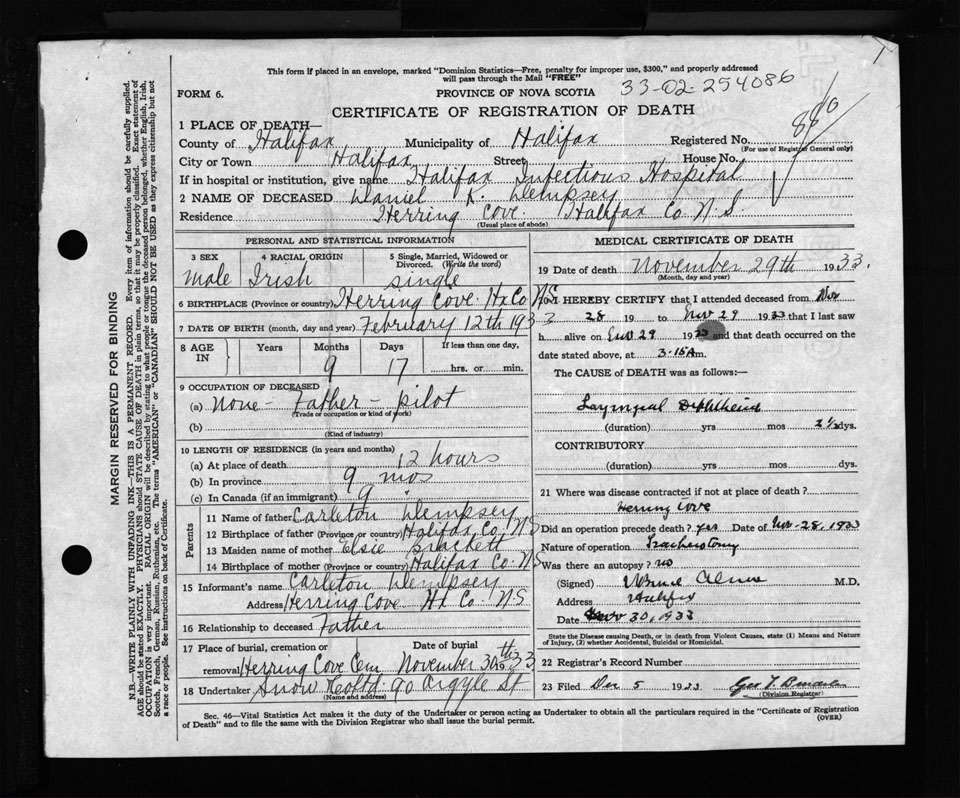 This form if placed in an envelope, marked "Dominion Statistics—Free, penalty for improper use, $300," and properly addressed
will pass through the Mail "FREE"
33-02-254086
FORM 6.
PROVINCE OF NOVA SCOTIA
CERTIFICATE OF REGISTRATION OF DEATH
1 PLACE OF DEATH—
County of Halifax Municipality of Halifax Registered No. 880
(For use of Registrar General only)
City or Town Halifax Street House No.
If in hospital or institution, give name Halifax Infectious Hospital
2 NAME OF DECEASED Daniel Dempsey
Residence Herring Cove. Halifax Co N.S.
(Usual place of abode)
PERSONAL AND STATISTICAL INFORMATION
3 SEX 4 RACIAL ORIGIN 5 Single, Married, Widowed or Divorced. (Write the word)
male Irish single
6 BIRTHPLACE (Province or country) Herring Cove Hx Co N.S.
7 DATE OF BIRTH (month, day and year) February 12th 1933
8 AGE IN Years Months Days If less than one day,
9 17 hrs. or min.
9 OCCUPATION OF DECEASED
(a) None - Father - pilot
(Trade or occupation or kind of work)
(b)
(Kind of industry)
10 LENGTH OF RESIDENCE (in years and months)
(a) At place of death 12 hours
(b) In province 9 mos
(c) In Canada (if an immigrant) 9
Parents
11 Name of father Carleton Dempsey
12 Birthplace of father (Province or country) Halifax Co. N.S
13 Maiden name of mother Elsie
14 Birthplace of mother (Province or country) Halifax Co. N.S
15 Informant's name Carleton Dempsey
Address Herring Cove Hx Co N.S
16 Relationship to deceased Father
17 Place of burial, cremation or removal Date of burial
Herring Cove Cem November 30th 33
18 Undertaker Snow Co Ltd 90 Argyle St
(Name and address)
MEDICAL CERTIFICATE OF DEATH
19 Date of death November 29th 1933.
(Month, day and year)
I HEREBY CERTIFY that I attended deceased from Nov
28 19 to Nov 29 1933 that I last saw
h alive on Nov 29 1933 and that death occurred on
date stated above, at 3.15 A m.
The CAUSE of DEATH was as follows:—
Laryngeal Diphtheria
(duration) yrs mos 2 1/2 dys.
CONTRIBUTORY
(duration) yrs mos dys.
21 Where was disease contracted if not at place of death?
Herring Cove
Did an operation precede death? yes Date of Nov-28, 1933
Nature of operation Tracheotomy
Was there an autopsy? no
(Signed) M.D.
Address Halifax
Date Nov 30, 1933
State the Disease causing Death, or in death from Violent Causes, state (1) Means and Nature
of Injury, (2) whether Accidental, Suicidal or Homicidal.
22 Registrar's Record Number
23 Filed Dec 5 1933 Geo
(Division Registrar)
Sec. 46—Vital Statistics Act makes it the duty of the Undertaker or person acting as Undertaker to obtain all the particulars required in the "Certificate of Registration
of Death" and to file the same with the Division Registrar who shall issue the burial permit.
(OVER)
MARGIN RESERVED FOR BINDING
N.B.—WRITE PLAINLY WITH UNFADING INK—THIS IS A PERMANENT RECORD. Every item of information should be carefully supplied.
AGE should be stated EXACTLY. PHYSICIANS should STATE CAUSE OF DEATH in plain terms, so that it may be properly classified. Exact statement of
OCCUPATION is very important. RACIAL ORIGIN will be described by stating to what people or tongue the deceased person belonged, whether English, Irish,
Scotch, French, German, Russian, Ruthenian, etc. The terms "AMERICAN" or "CANADIAN" SHOULD NOT BE USED as they express citizenship but not
a race or people. See instructions on back of Certificate.